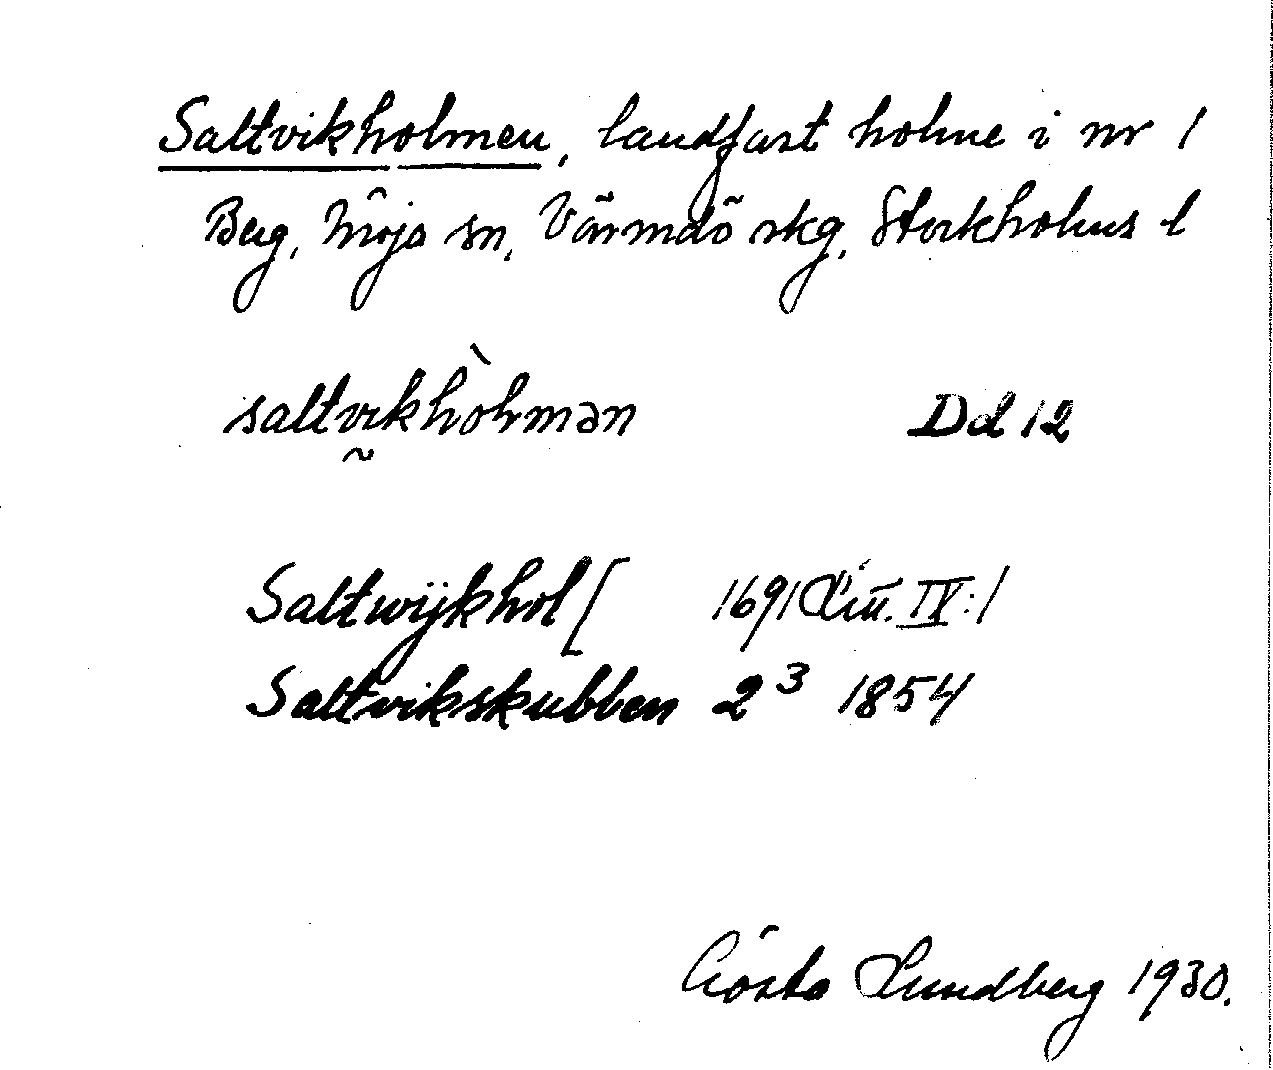 Saltvikholmen, landfast holme i nr 1
Berg, Möja sn, Värmdö skg, Stockholms l
saltvikhòlmən Dd 12
Saltwijkhol[ 1691 IV:1
Saltvikskubben 2³ 1854
Gösta Lundberg 1930.